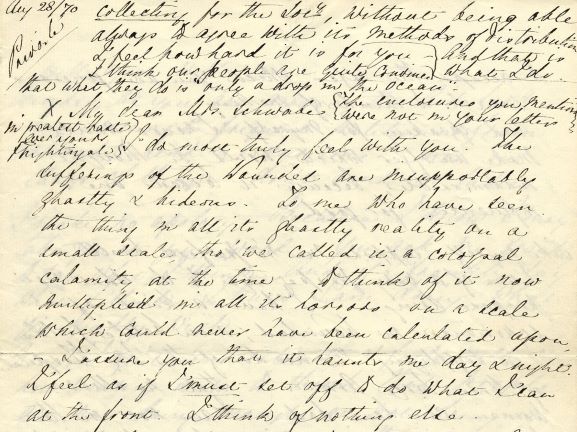 Aug 28/70
Private
collecting for the Socy, without being able
always to agree with its methods of distribution
I feel how hard it is for you - And that is
I think our people are quite convinced what I do.
that what they do is "only a drop in the ocean".
X My dear Mrs. Schwabe
The enclosures you mention
were not in your letter
in greatest haste
ever yours
F Nightingale
I do most truly feel with you. The
sufferings of the Wounded are insupportably
ghastly & hideous. To me who have seen
the thing in all its ghastly reality on a
small scale tho' we called it a colossal
calamity at the time I think of it now
multiplied in all its horrors on a scale
which could never have been calculated upon.
- I assure you that it haunts me day & night.
I feel as if I must set off & do what I can
at the front. I think of nothing else.